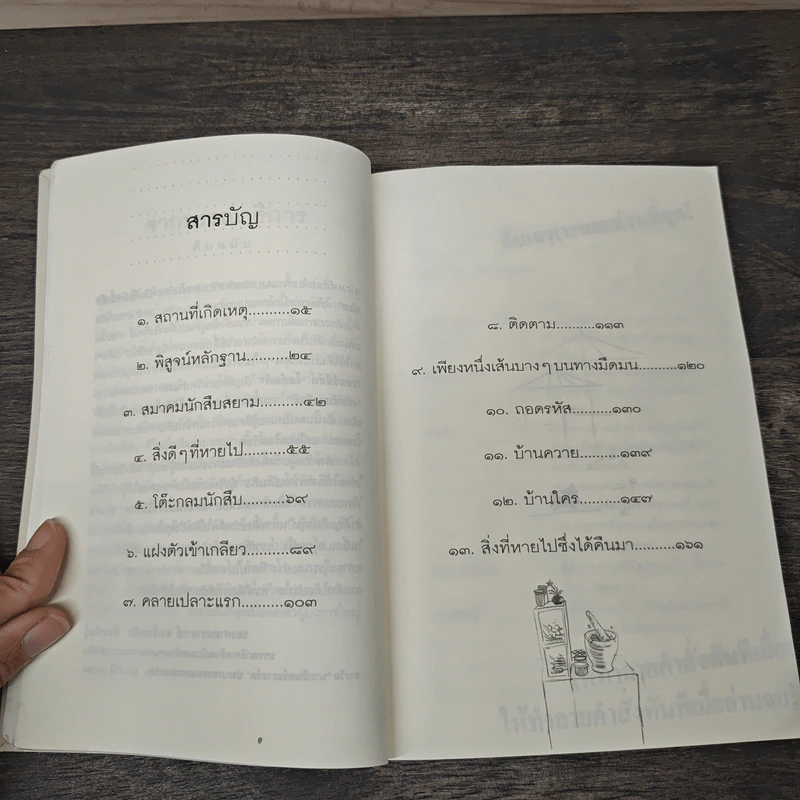 สารบัญ
๑. สถานที่เกิดเหตุ..........๑๕
๒. พิสูจน์หลักฐาน..........๒๔
๓. สมาคมนักสืบสยาม..........๔๒
๔. สิ่งดีๆ ที่หายไป..........๕๕
๕. โต๊ะกลมนักสืบ..........๖๙
๖. แฝงตัวเข้าเกลียว..........๘๙
๗. คลายเปลาะแรก..........๑๐๓
๘. ติดตาม..........๑๑๓
๙. เพียงหนึ่งเส้นบางๆ บนทางมืดมน..........๑๒๐
๑๐. ถอดรหัส..........๑๓๐
๑๑. บ้านควาย..........๑๓๙
๑๒. บ้านใคร..........๑๔๗
๑๓. สิ่งที่หายไปซึ่งได้คืนมา..........๑๖๑